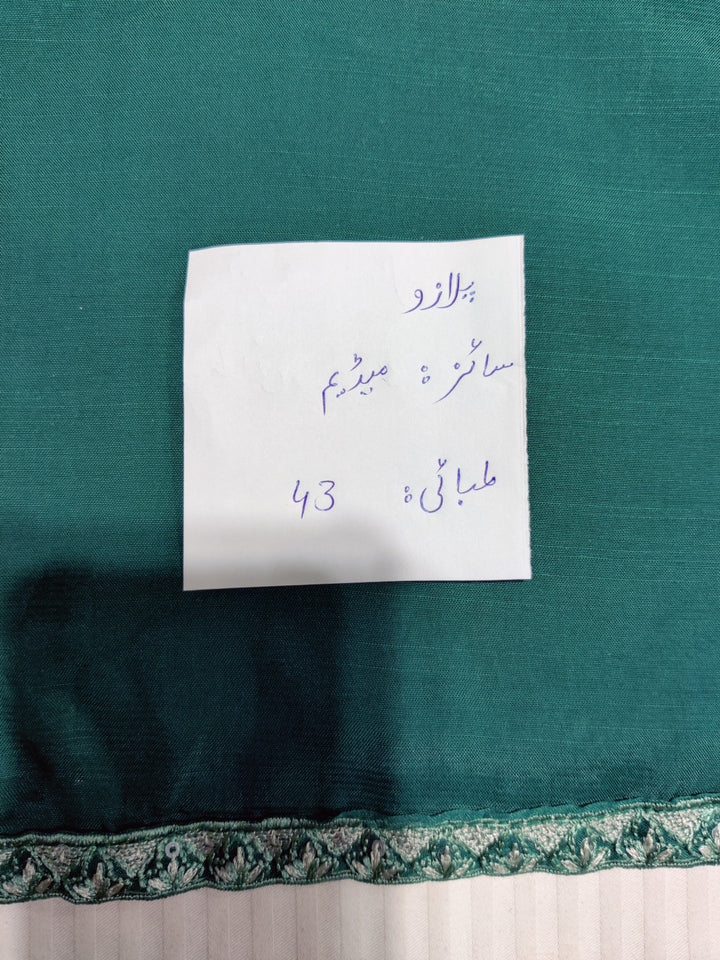 پلازو
سائز: میڈیم
لمبائی: 43